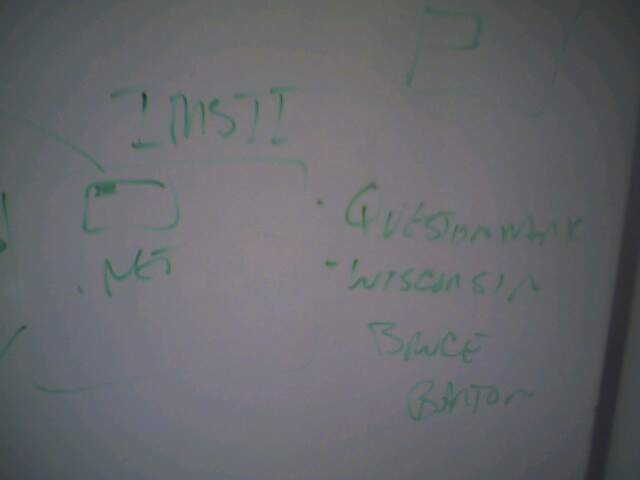 IMSTI
.NET
• QUESTIONMARK
- WISCONSIN
BRUCE
BARTON